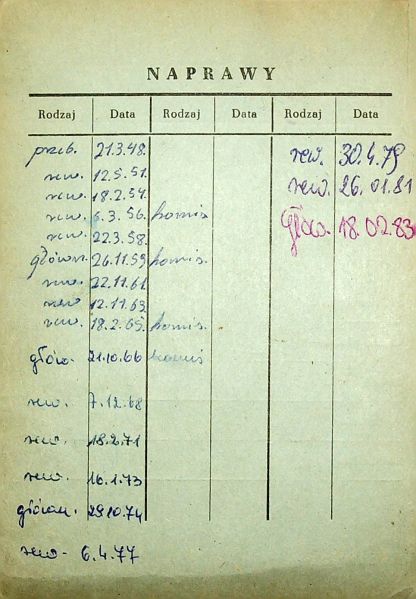 NAPRAWY
Rodzaj Data Rodzaj Data Rodzaj Data
przeb. 21.3.48. rew. 30.4.79
rew. 12.5.51. rew. 26.01.81
rew. 18.2.54. głów. 18.02.83
rew. 6.3.56. komis.
rew. 22.3.58.
główn. 26.11.59 komis.
rew. 22.11.61
rew. 12.11.63
rew. 18.2.65. komis.
głów. 21.10.66 komis
rew. 7.12.68
rew. 18.2.71
rew. 16.1.73
główn. 29.10.74
rew. 6.4.77